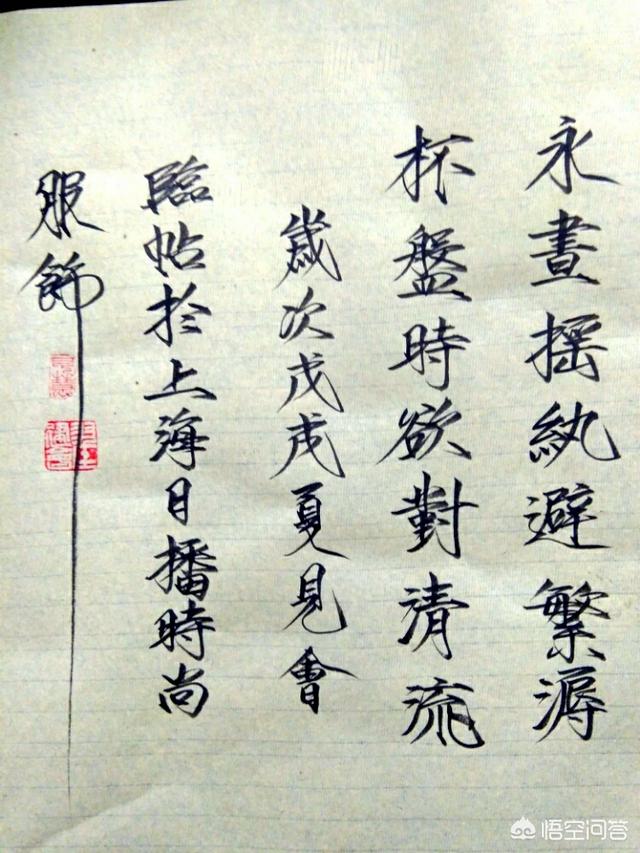 永晝搖紈避繁溽
杯盤時欲對清流
歲次戊戌夏見會
臨帖於上海日播時尚
服飾
悟空问答